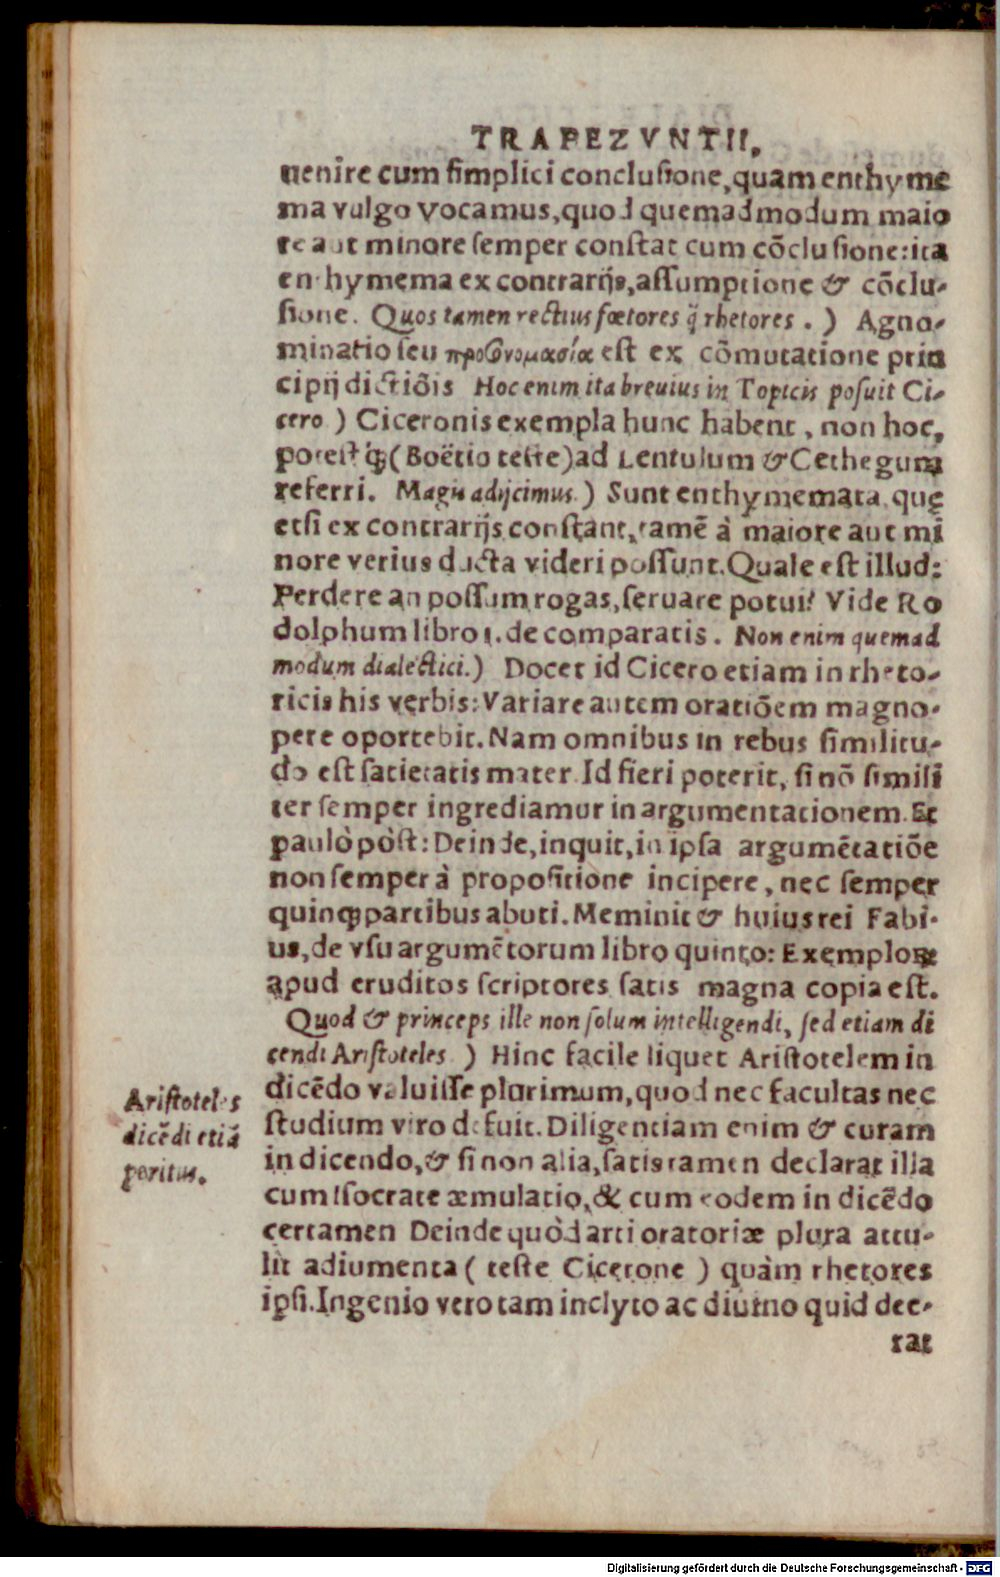 TRAPEZVNTII.
uenire cum simplici conclusione, quam enthyme
ma vulgo vocamus, quod quemadmodum maio
re aut minore semper constat cum cōclusione: ita
enthymema ex contrarijs, assumptione & cōclu-
sione. Quos tamen rectius fœtores q̄ rhetores . ) Agno-
minatio seu προσονομασία est ex cōmutatione prin
cipij dictiōis Hoc enim ita breuius in Topicis posuit Ci-
cero ) Ciceronis exempla hunc habent, non hoc,
potest q́; (Boëtio teste) ad Lentulum & Cethegum
referri. Magis adijcimus. ) Sunt enthymemata, quę
etsi ex contrarijs constant, tamē à maiore aut mi
nore verius ducta videri possunt. Quale est illud:
Perdere an possum rogas, seruare potui? Vide Ro
dolphum libro 1. de comparatis. Non enim quemad
modum dialectici.) Docet id Cicero etiam in rheto-
ricis his verbis: Variare autem oratiōem magno-
pere oportebit. Nam omnibus in rebus similitu-
do est satietatis mater. Id fieri poterit, si nō simili
ter semper ingrediamur in argumentationem. Et
paulò pòst: Deinde, inquit, in ipsa argumētatiōe
non semper à propositione incipere, nec semper
quinq; partibus abuti. Meminit & huius rei Fabi-
us, de vsu argumētorum libro quinto: Exemplorꝝ
apud eruditos scriptores satis magna copia est.
Quod & princeps ille non solum intelligendi, sed etiam di
cendi Aristoteles ) Hinc facile liquet Aristotelem in
dicēdo valuisse plurimum, quod nec facultas nec
studium viro defuit. Diligentiam enim & curam
in dicendo, & si non alia, satis tamen declarat illa
cum Isocrate æmulatio, & cum eodem in dicēdo
certamen Deinde quòd arti oratoriæ plura attu-
lit adiumenta ( teste Cicerone ) quàm rhetores
ipsi. Ingenio vero tam inclyto ac diuino quid dee-
rat
Aristoteles
dicēdi etiā
peritus.
Digitalisierung gefördert durch die Deutsche Forschungsgemeinschaft - DFG